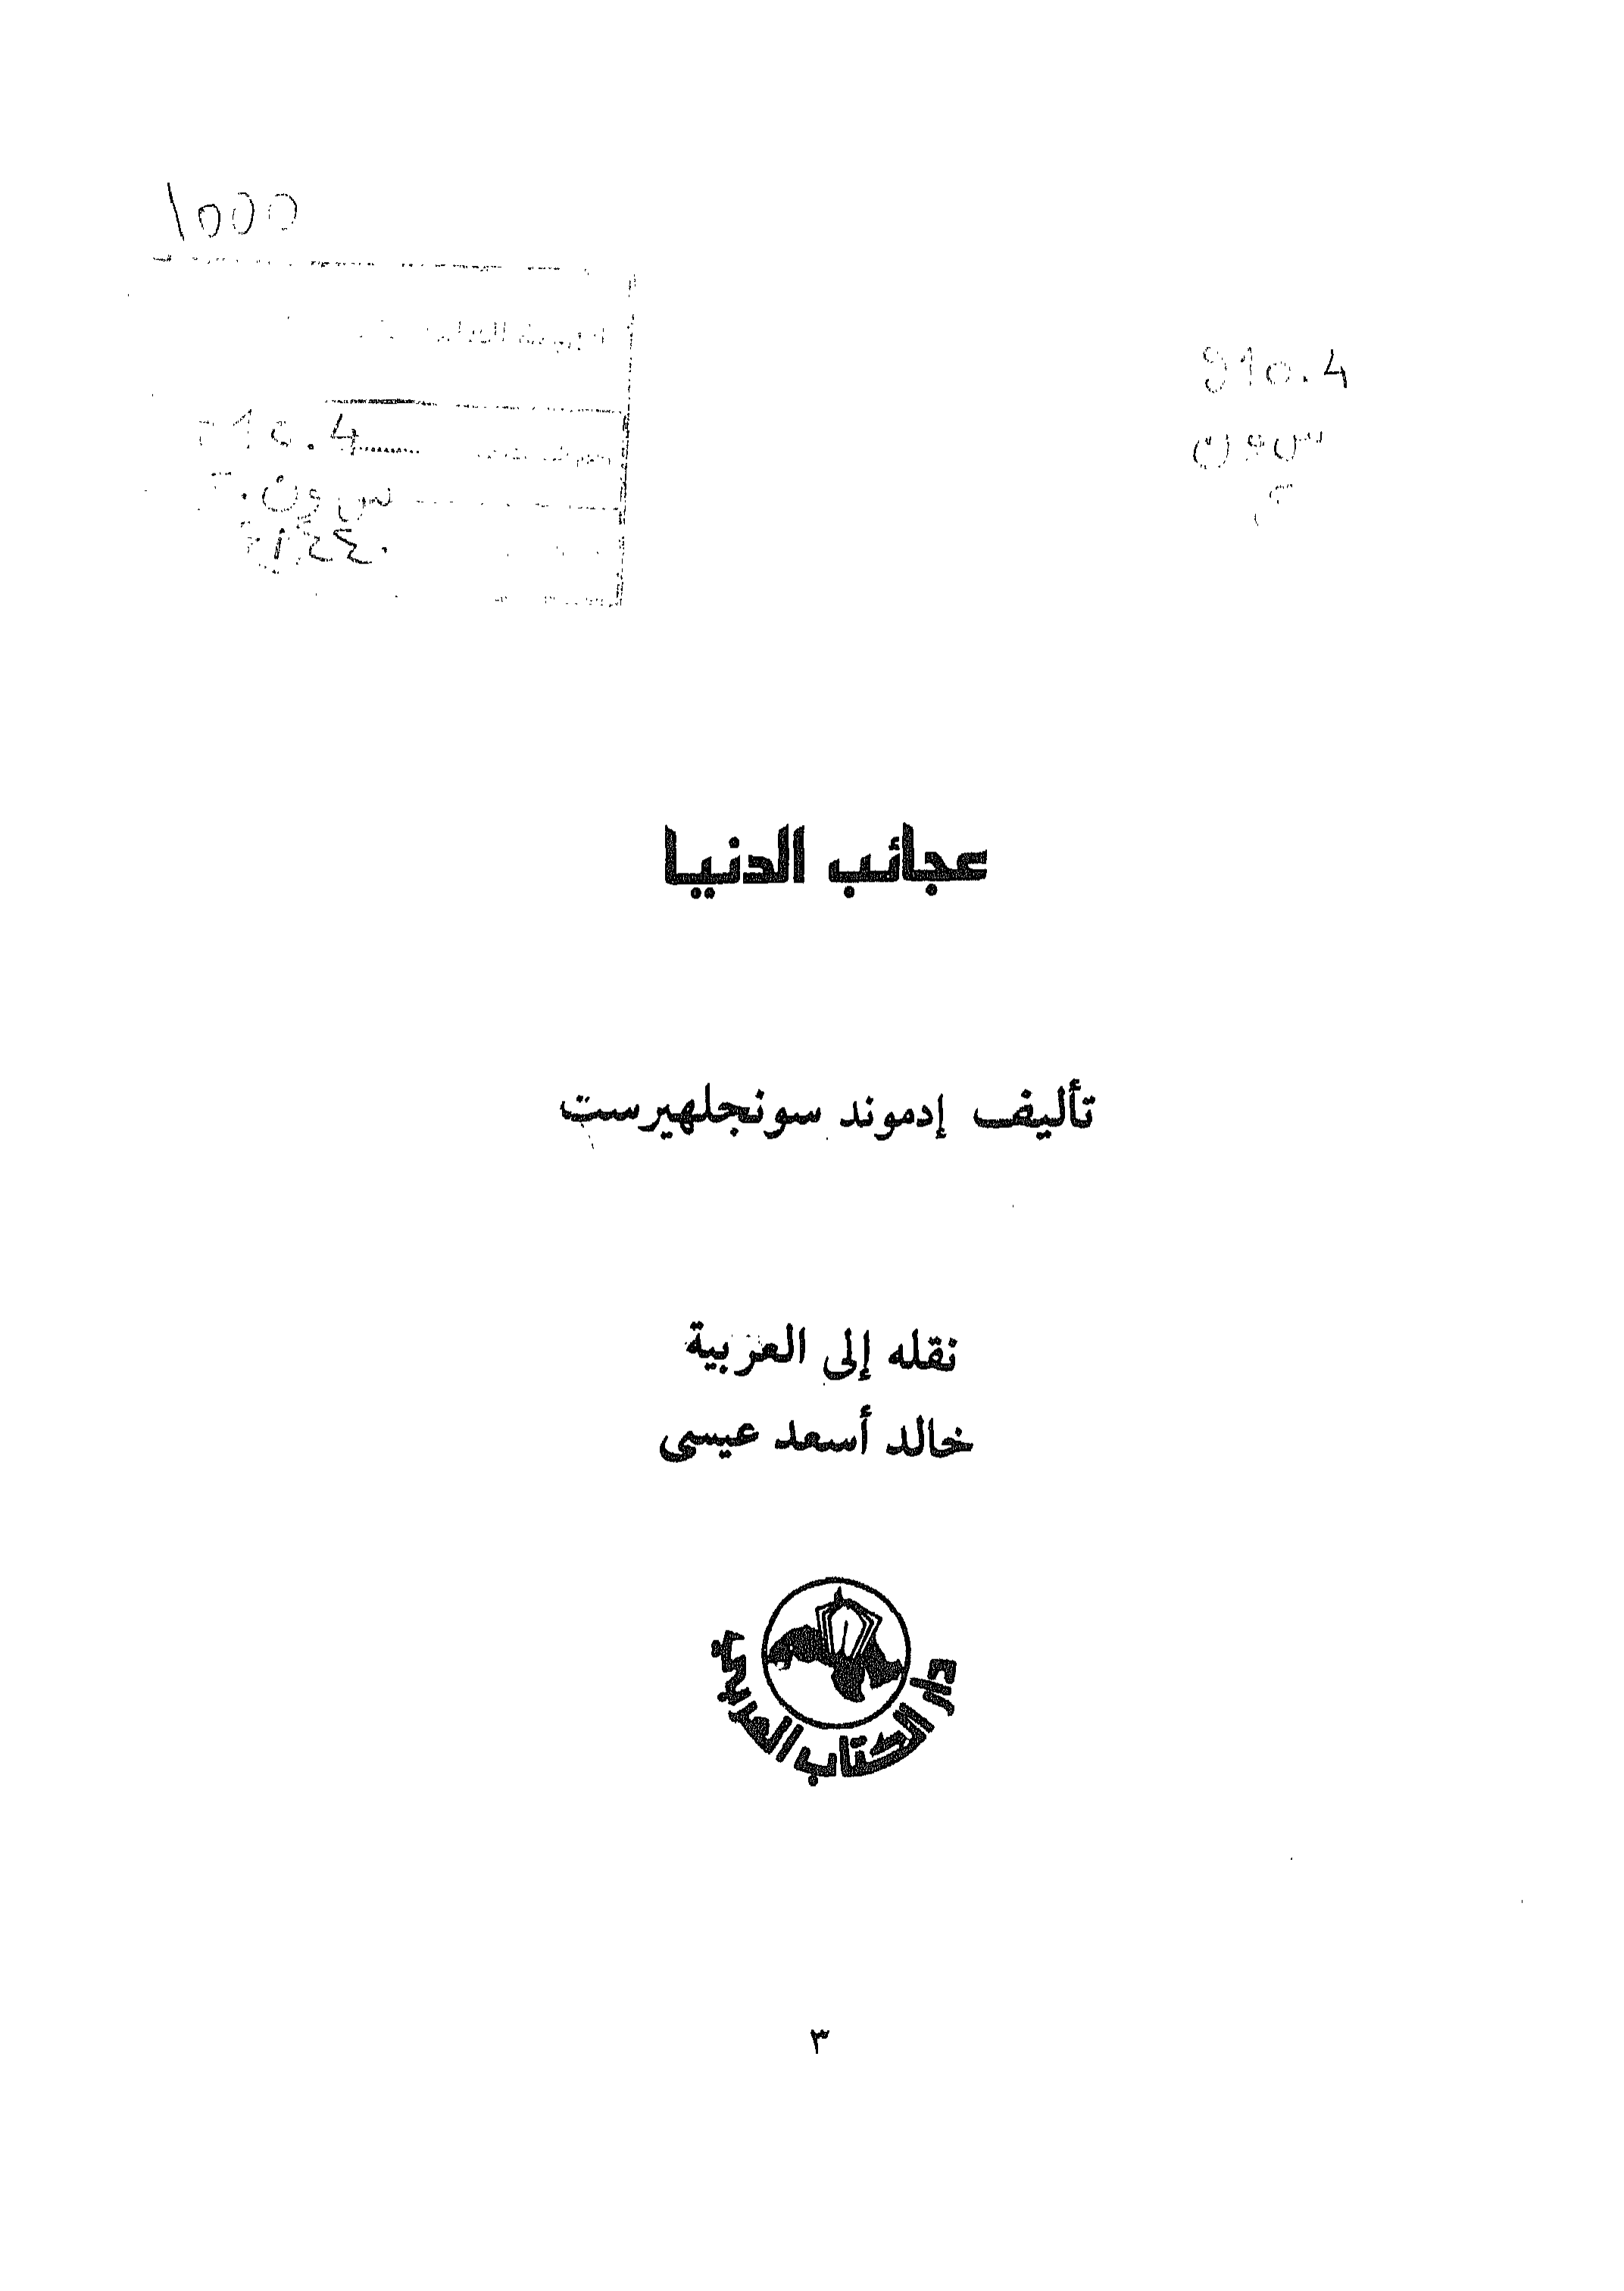 1000
910.4
س ون
910.4
س ون
عجائب الدنيا
تأليف إدموند سونجلهيرست
نقله إلى العربية
خالد أسعد عيسى
دار الكتاب العربي
٣